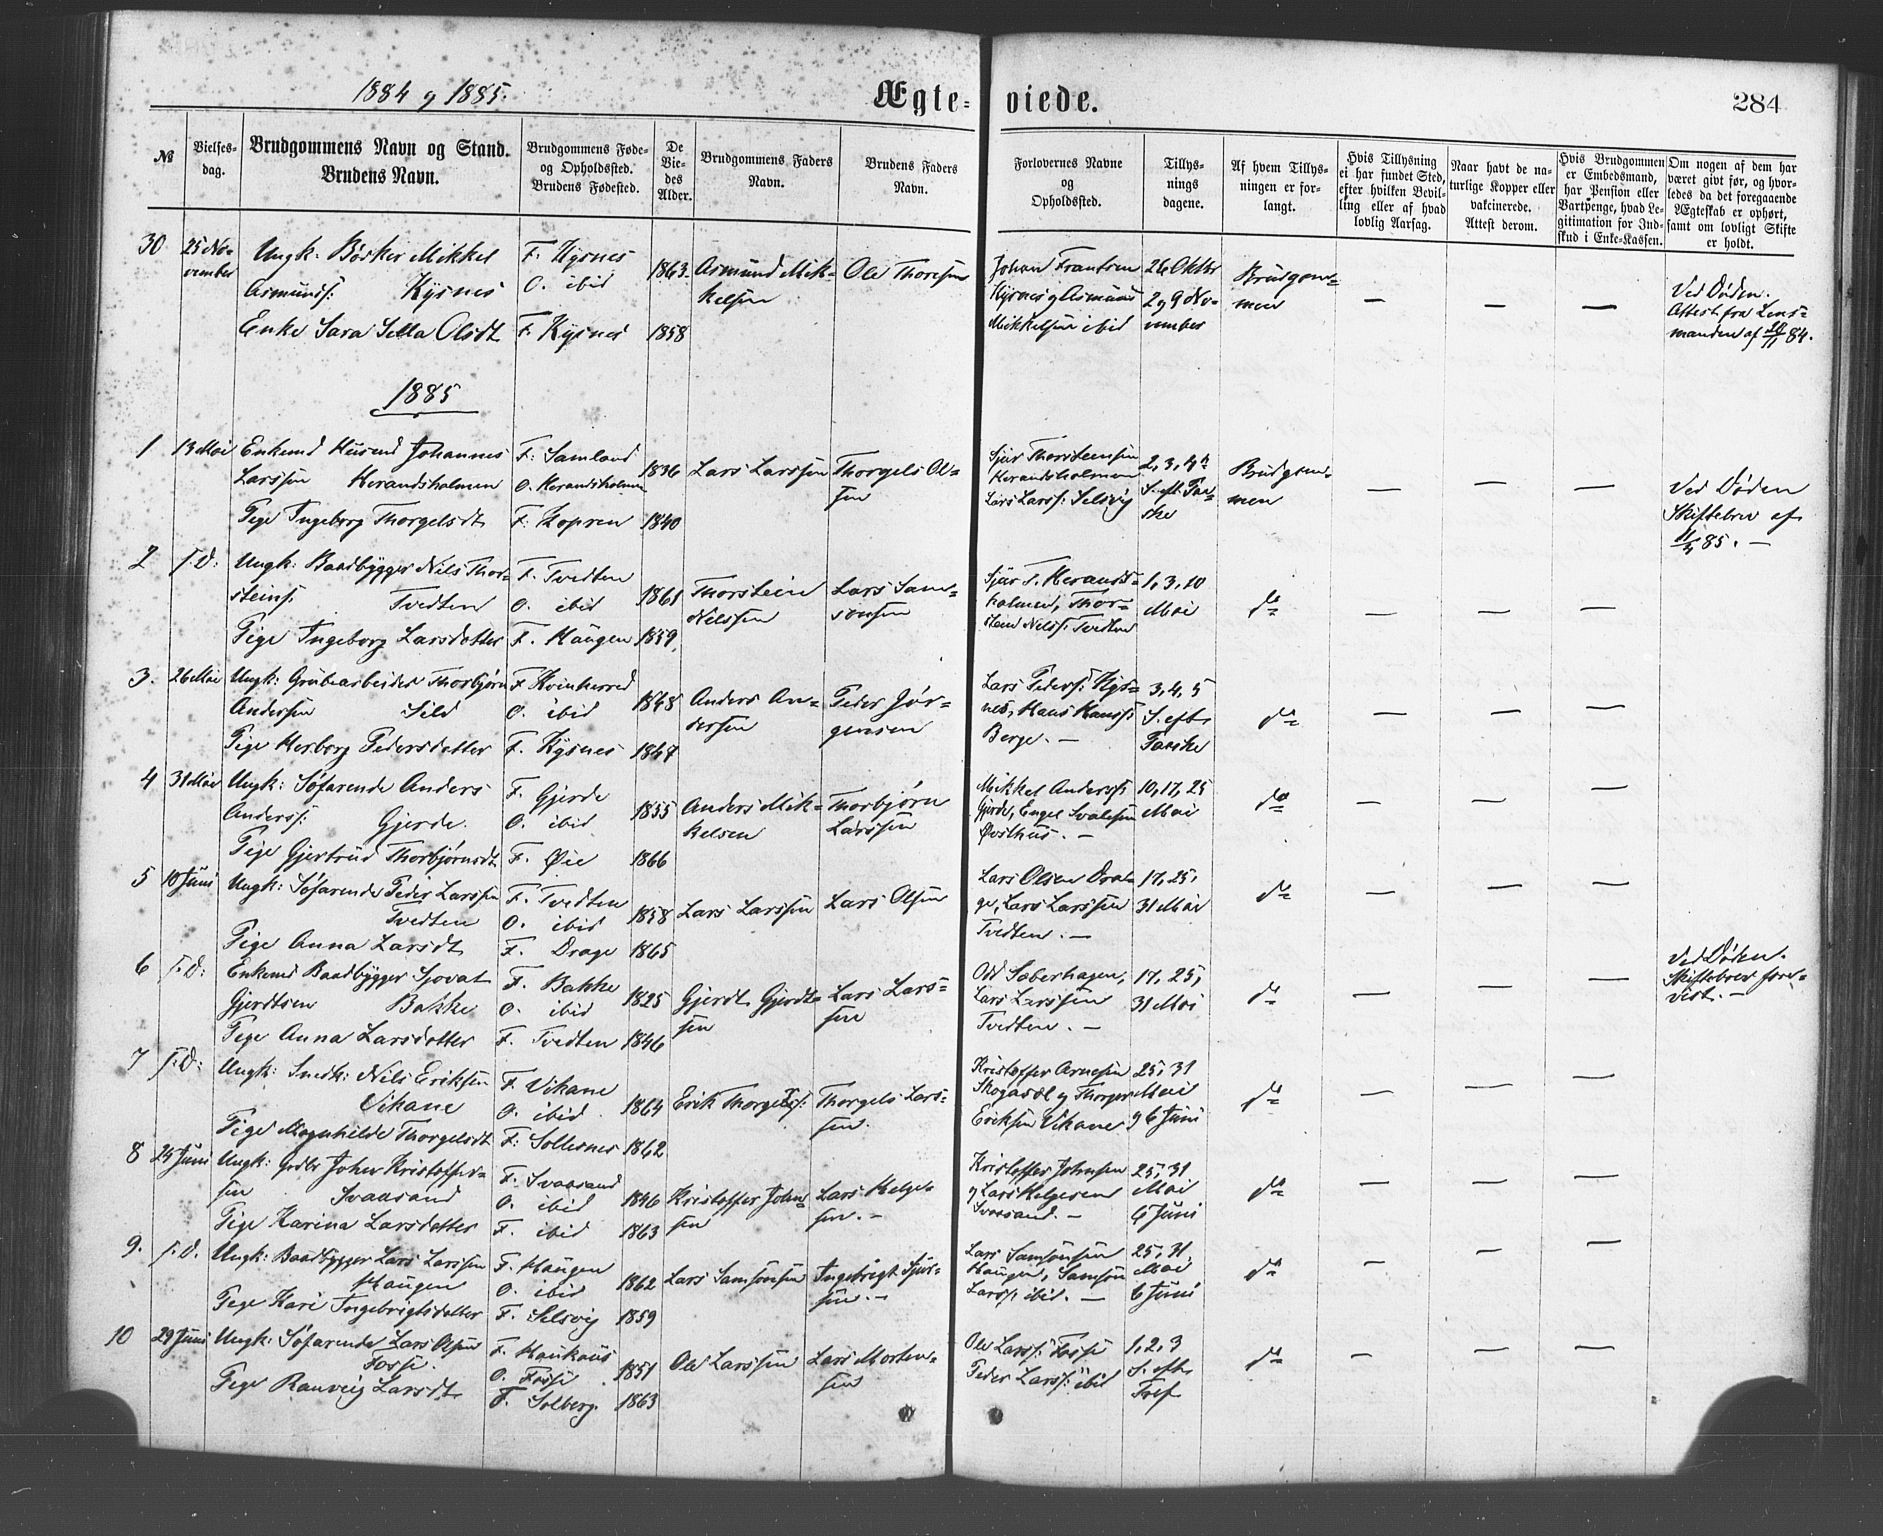 1884 og 1885.
Ægte-viede.
284
№
Vielses-
dag.
Brudgommens Navn og Stand.
Brudens Navn.
Brudgommens Føde-
og Opholdssted.
Brudens Fødested.
De
Vie-
des
Alder.
Brudgommens Faders
Navn.
Brudens Faders
Navn.
Forlovernes Navne
og
Opholdssted.
Tillys-
nings
dagene.
Af hvem Tillys-
ningen er for-
langt.
Hvis Tillysning
ei har fundet Sted,
efter hvilken Bevil-
ling eller af hvad
lovlig Aarsag.
Naar havt de na-
turlige Kopper eller
vakcinerede.
Attest derom.
Hvis Brudgommen
er Embedsmand,
har Pension eller
Vartpenge, hvad Le-
gitimation for Ind-
skud i Enke-Kassen.
Om nogen af dem har
været givt før, og hvor-
ledes da det foregaaende
Ægteskab er ophørt,
samt om lovligt Skifte
er holdt.
30
25 No-
vember
Ungk. Bødker Mikkel
Asmunds: Kysnes
Enke Sara Sella Olsdt
F. Kysnes
O. ibid
F. Kysnes
1863
1858
Asmund Mik-
kelsen
Ole Thoresen
Johan Frantsen
Kysnes og Asmund
Mikkelsen ibid
26 Oktbr
2 og 9 No-
vember
Brudgom-
men
— — —
Ved Døden.
Attest fra Lens-
manden af 20/11 84.
1885
1
13 Mai
Enkemd Husmd Johannes
Larssen Herandsholmen
Pige Ingeborg Thorgelsdt
F. Samland
O. Herandsholmen
F. Kopren
1836
1840
Lars Larssen
Thorgels Ol-
sen
Sjur Thorsteinsen
Herandsholmen
Lars Larss: Selsvig
2, 3, 4de
S. eft. Paa-
ske
Brudgom-
men
— — —
Ved Døden
Skiftebrev af
85. —
2
S. D.
Ungk: Baadbygger Nils Thor-
steins. Tvedten
Pige Ingeborg Larsdatter
F. Tvedten
O. ibid
F. Haugen
1861
1859
Thorstein
Nilssen
Lars Sam-
sonsen
Sjur T. Herands-
holmen, Thor-
stein Nilss: Tvedten
1, 3, 10
Mai
do
— — —
3.
26 Mai
Ungk: Grubearbeider Thorbjørn
Anderssen Sild
Pige Herborg Pedersdatter
F. Kvinherred
O. ibid
F. Kysnes
1848
1847
Anders An-
derssen
Peder Jør-
gensen
Lars Peders: Kys-
nes, Hans Hanss:
Berge. —
3, 4, 5
S. eft.
Paaske
do
— — —
4
31 Mai
Ungk: Søfarende Anders
Anderss: Gjerde.
Pige Gjertrud Thorbjørnsdt
F. Gjerde
O. ibid
F. Øie
1855
1866
Anders Mik-
kelsen
Thorbjørn
Larssen
Mikkel Anderss:
Gjerde, Engel
Østhus. —
10, 17, 25
Mai
do
— — —
5
10 Juni
Ungk: Søfarende Peder Larssen
Tvedten
Pige Anna Larsdt
F. Tvedten
O. ibid
F. Drage
1858
1865
Lars Larssen
Lars Olsen
Lars Olsen Dra-
ge, Lars Larssen
Tvedten. —
17, 25,
31 Mai
do
— — —
6
S. D:
Enkemd Baadbygger Sjovat
Gjerdtsen Bakke
Pige Anna Larsdatter
F. Bakke
O. ibid
F. Tvedten
1825
1846
Gjerdt Gjerdt-
sen
Lars Lars-
sen
Odd Saberhagen,
Lars Larssen
Tvedten. —
17, 25,
31 Mai
do
— — —
Ved Døden.
Skiftebrev fore-
vist. —
7
S. D:
Ungk: Smed: Nils Eriksen
Vikane
Pige Magnhilde Thorgelsdt
F. Vikane
O. ibid
F. Sollesnes
1864
1862
Erik Thorgels:
Thorgels Lars-
sen.
Kristoffer Arnesen
Skogasæl og Thorger
Eriksen Vikane
25, 31
Mai
og 6 Juni
do
— — —
8
24 Juni
Ungk: Gdbr Joher Kristoffer-
sen Svaasand
Pige Karina Larsdatter
F. Svaasand
O. ibid
F. ibid
1846
1863
Kristoffer John-
sen
Lars Helge-
sen. —
Kristoffer Johnsen
og Lars Helgesen
Svaasand. —
25, 31
Mai
6 Juni
do
— — —
9.
S. D.
Ungk: Baadbygger Lars Larssen
Haugen
Pige Kari Ingebrigtsdatter
F. Haugen
O. ibid
F. Selsvig
1862
1859
Lars Samsonsen
Ingebrigt Sjur-
sen. —
Lars Samsonsen
Haugen, Samson
Larss: ibid. —
25, 31
Mai
6 Juni
do
— — —
10
29 Juni
Ungk: Søfarende Lars Olsen
Fosse.
Pige Ranveig Larsdt
F. Haukaas
O. Fosse
F. Solberg.
1851
1863
Ole Larssen
Lars Morten-
sen
Ole Larss: Fosse
Peder Larss: ibid
1, 2, 3
S. eft.
Tref.
do
— — —